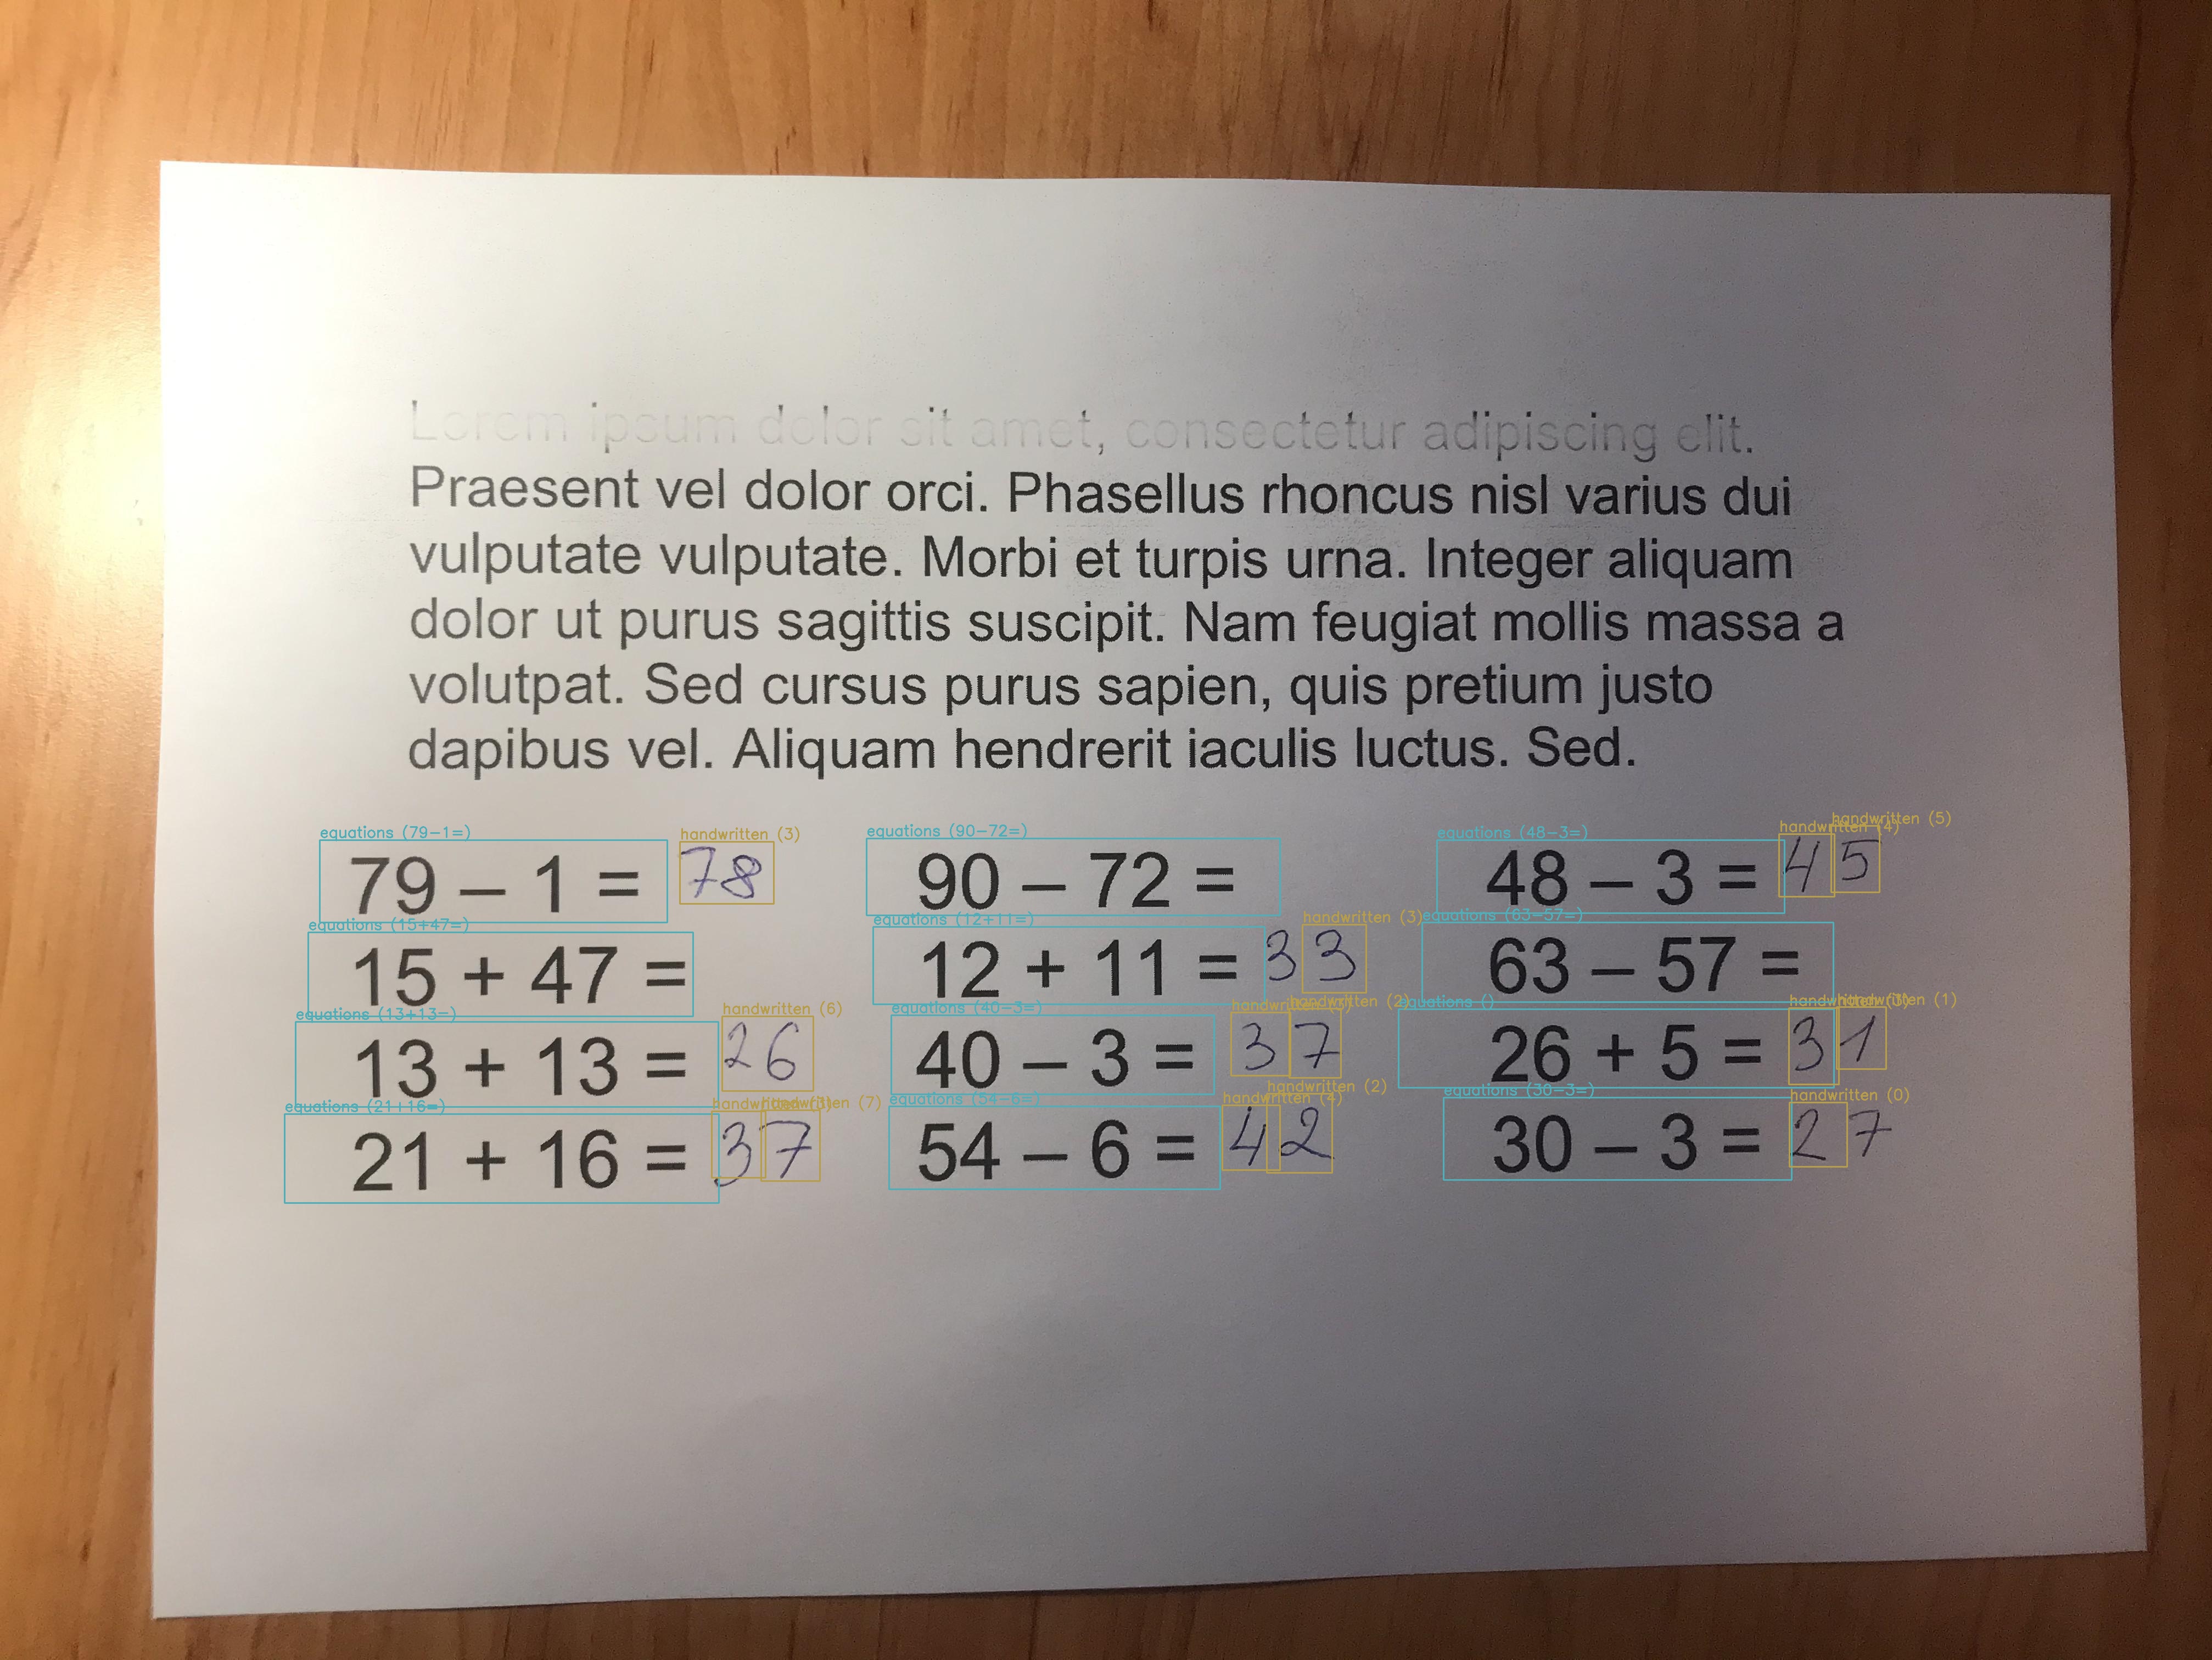 Lorem ipsum dolor sit amet, consectetur adipiscing elit.
Praesent vel dolor orci. Phasellus rhoncus nisl varius dui
vulputate vulputate. Morbi et turpis urna. Integer aliquam
dolor ut purus sagittis suscipit. Nam feugiat mollis massa a
volutpat. Sed cursus purus sapien, quis pretium justo
dapibus vel. Aliquam hendrerit iaculis luctus. Sed.
equations (79-1=) handwritten (3) equations (90-72=) equations (48-3=) handwritten (4) handwritten (5)
79 – 1 = 78 90 – 72 = 48 – 3 = 45
equations (15+47=) equations (12+11=) handwritten (3) equations (63-57=)
15 + 47 = 12 + 11 = 33 63 – 57 =
equations (13+13-) handwritten (6) equations (40-3=) handwritten handwritten (2) equations () handwritten (3) handwritten (1)
13 + 13 = 26 40 – 3 = 37 26 + 5 = 31
equations (21+16=) handwritten (3) handwritten (7) equations (54-6=) handwritten (4) handwritten (2) equations (30-3=) handwritten (0)
21 + 16 = 37 54 – 6 = 42 30 – 3 = 27